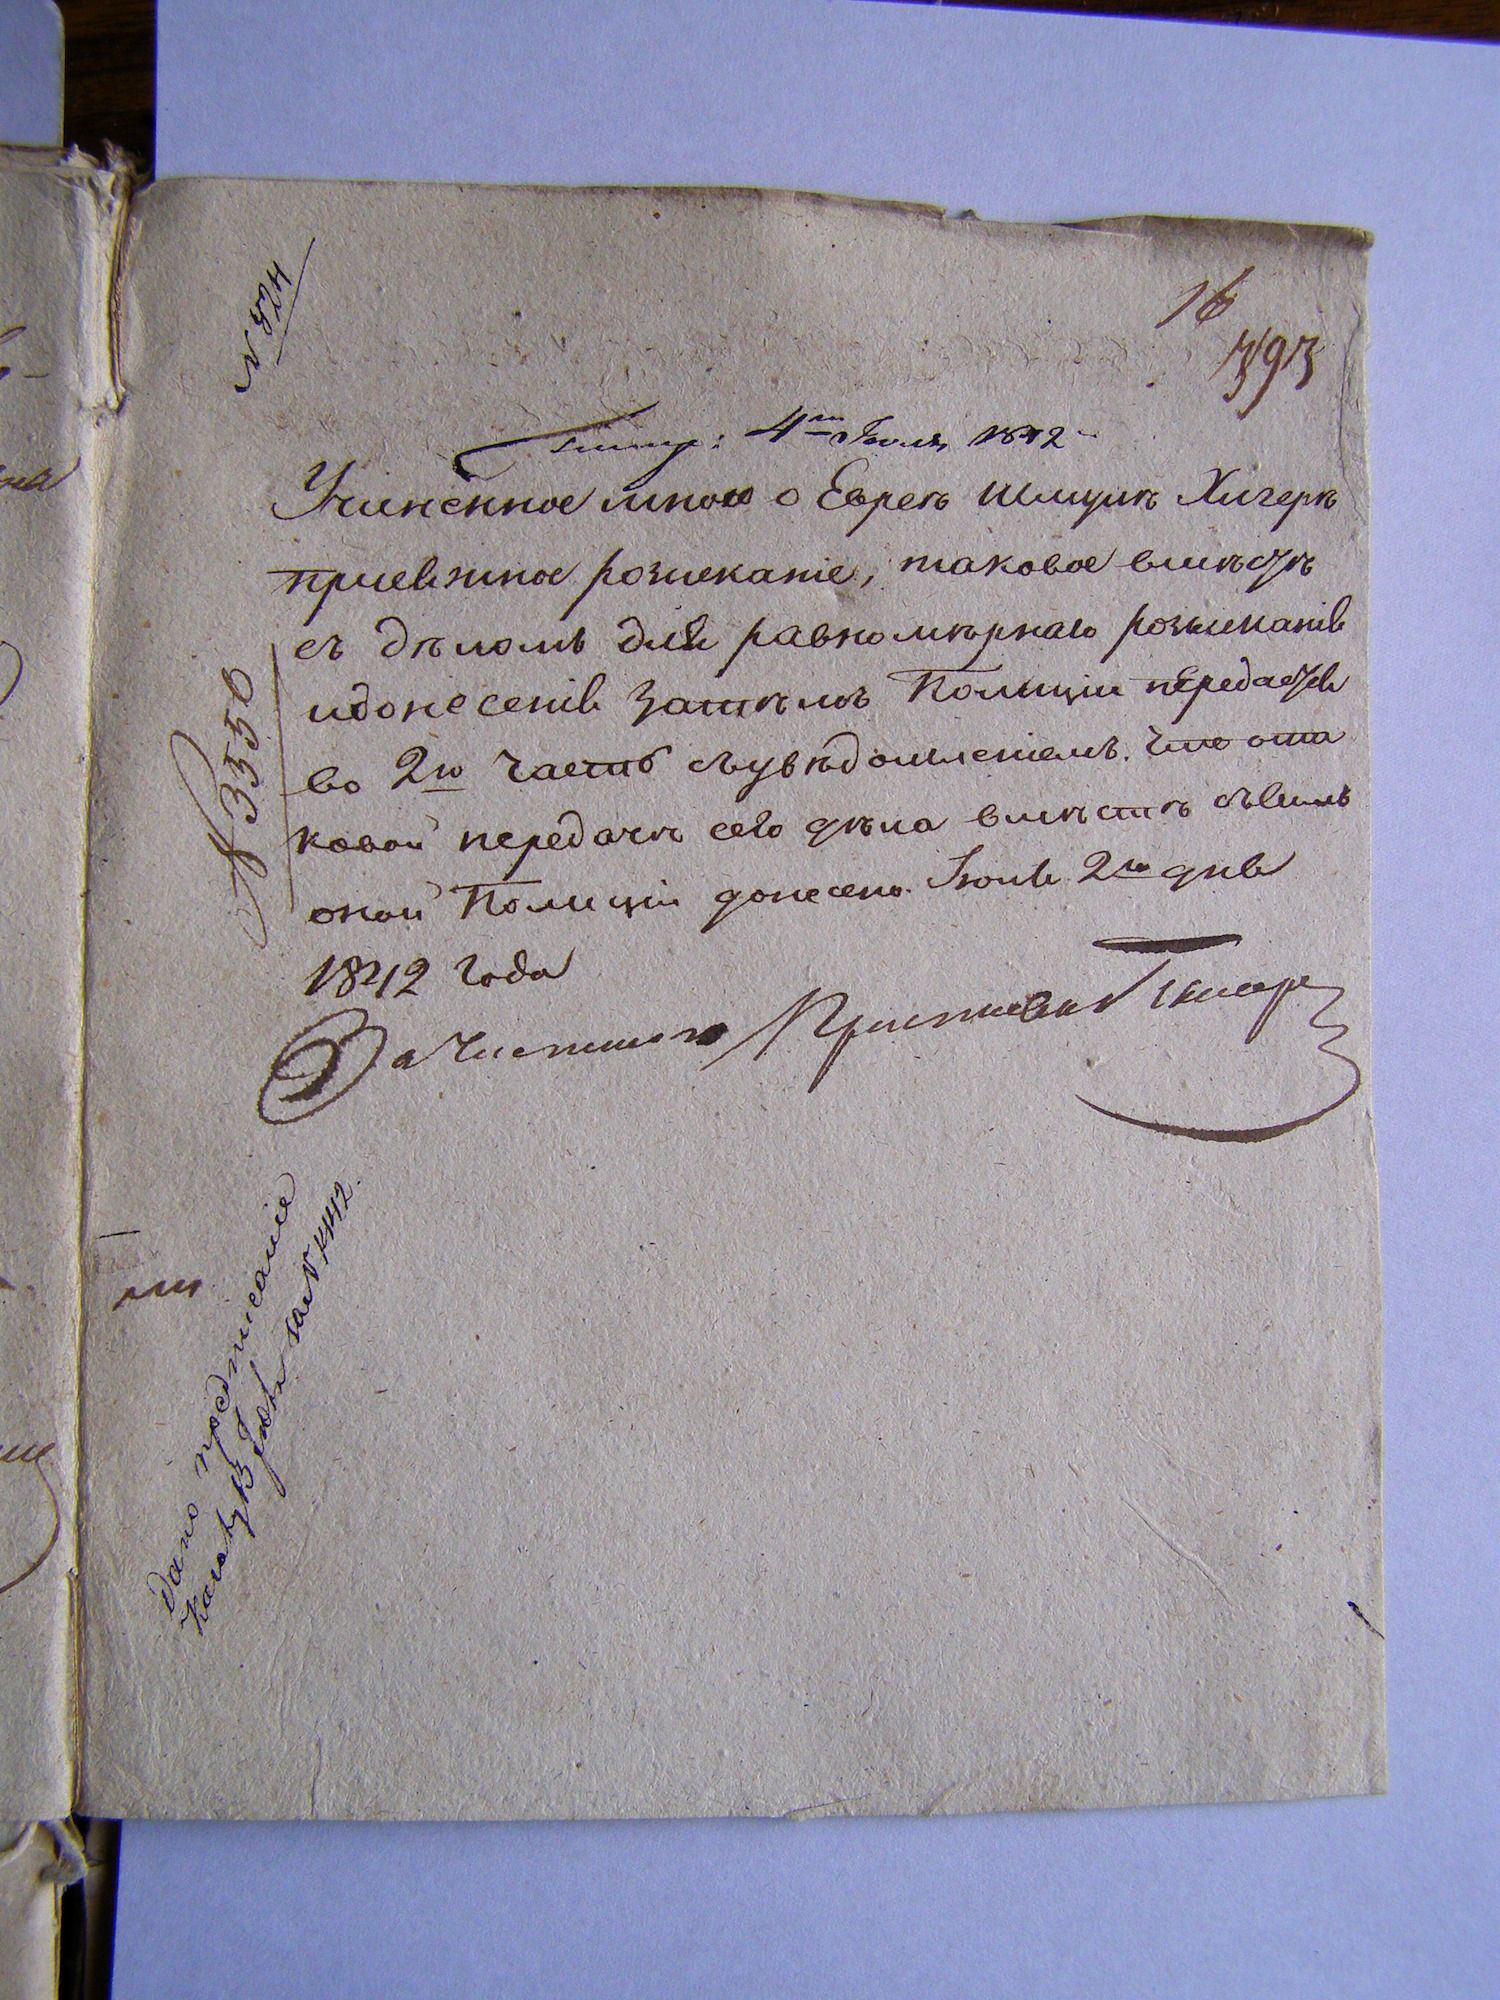 N 524
16
393
4го Июля 1842
Учиненное мною о Еврее Шмуйле Хигере
приевжное розыскание, таковое вместе
съ деломъ для равномернаго розыскания
и донесения затемъ Полиции передается
во 2ю часть съ уведомлениемъ. Что ота
ковой передаче сего дела вместе съ симъ
оной Полиции донесено. Июля 2го дня
1842 года
За Частнаго Пристава
N 3556
Дано предписание
N 4442.